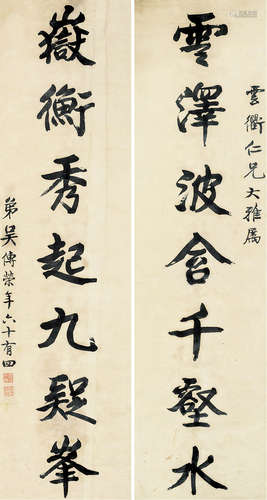 雲衢仁兄大雅属
雲澤波含千壑水
嶽衡秀起九疑峯
弟吳傳榮年六十有四